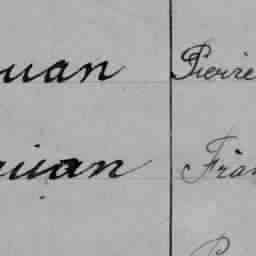 uan Pierre
uian Fran